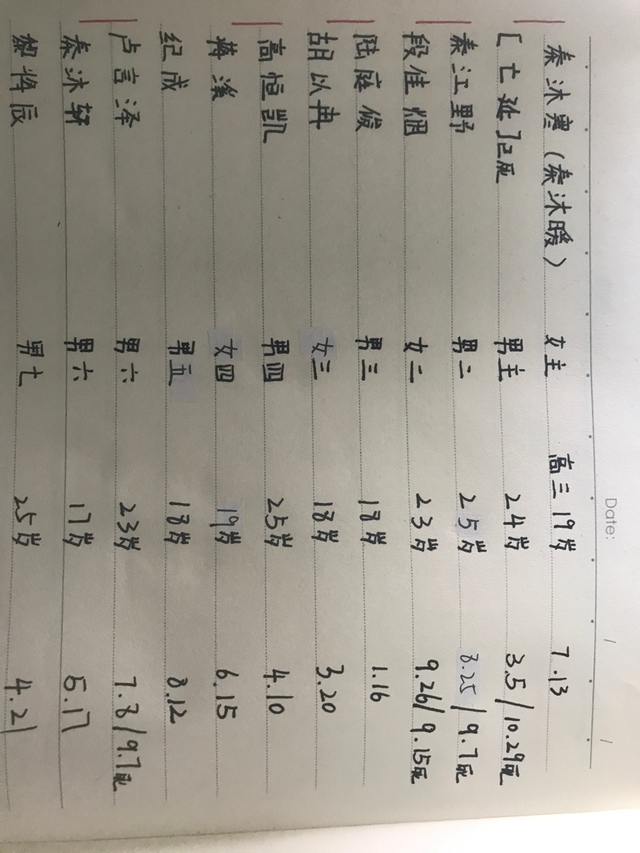 Date: / /
秦沐寒（秦沐暖） 女主 高三 19岁 7.13
男主 24岁 3.5/10.29死
秦江野 男二 25岁 8.25/9.7死
段佳烟 女二 23岁 9.26/9.15死
陆庭 男三 18岁 1.16
胡以冉 女三 18岁 3.20
高恒凯 男四 25岁 4.10
蒋溪 女四 19岁 6.15
纪成 男五 18岁 8.12
卢言泽 男六 23岁 7.8/9.7死
秦沐轩 男六 17岁 5.17
黎烨辰 男七 25岁 4.21